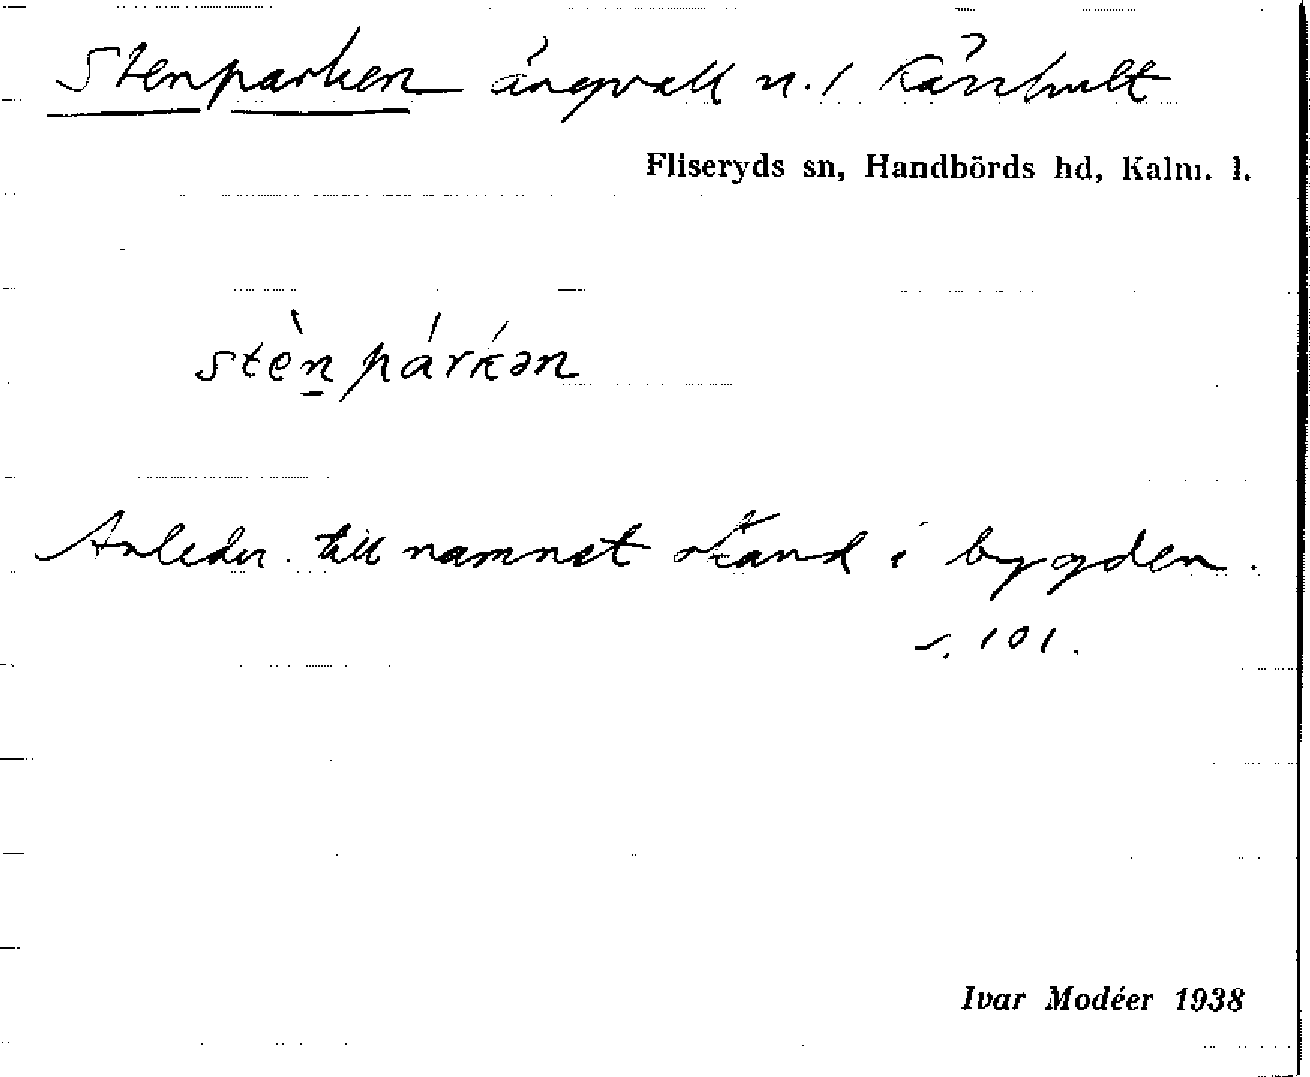 Stenparken ängsvall n. / Kärrhult
Fliseryds sn, Handbörds hd, Kalm. l.
stèn párkən
Anledn. till namnet okänd i bygden.
s. 101.
Ivar Modéer 1938